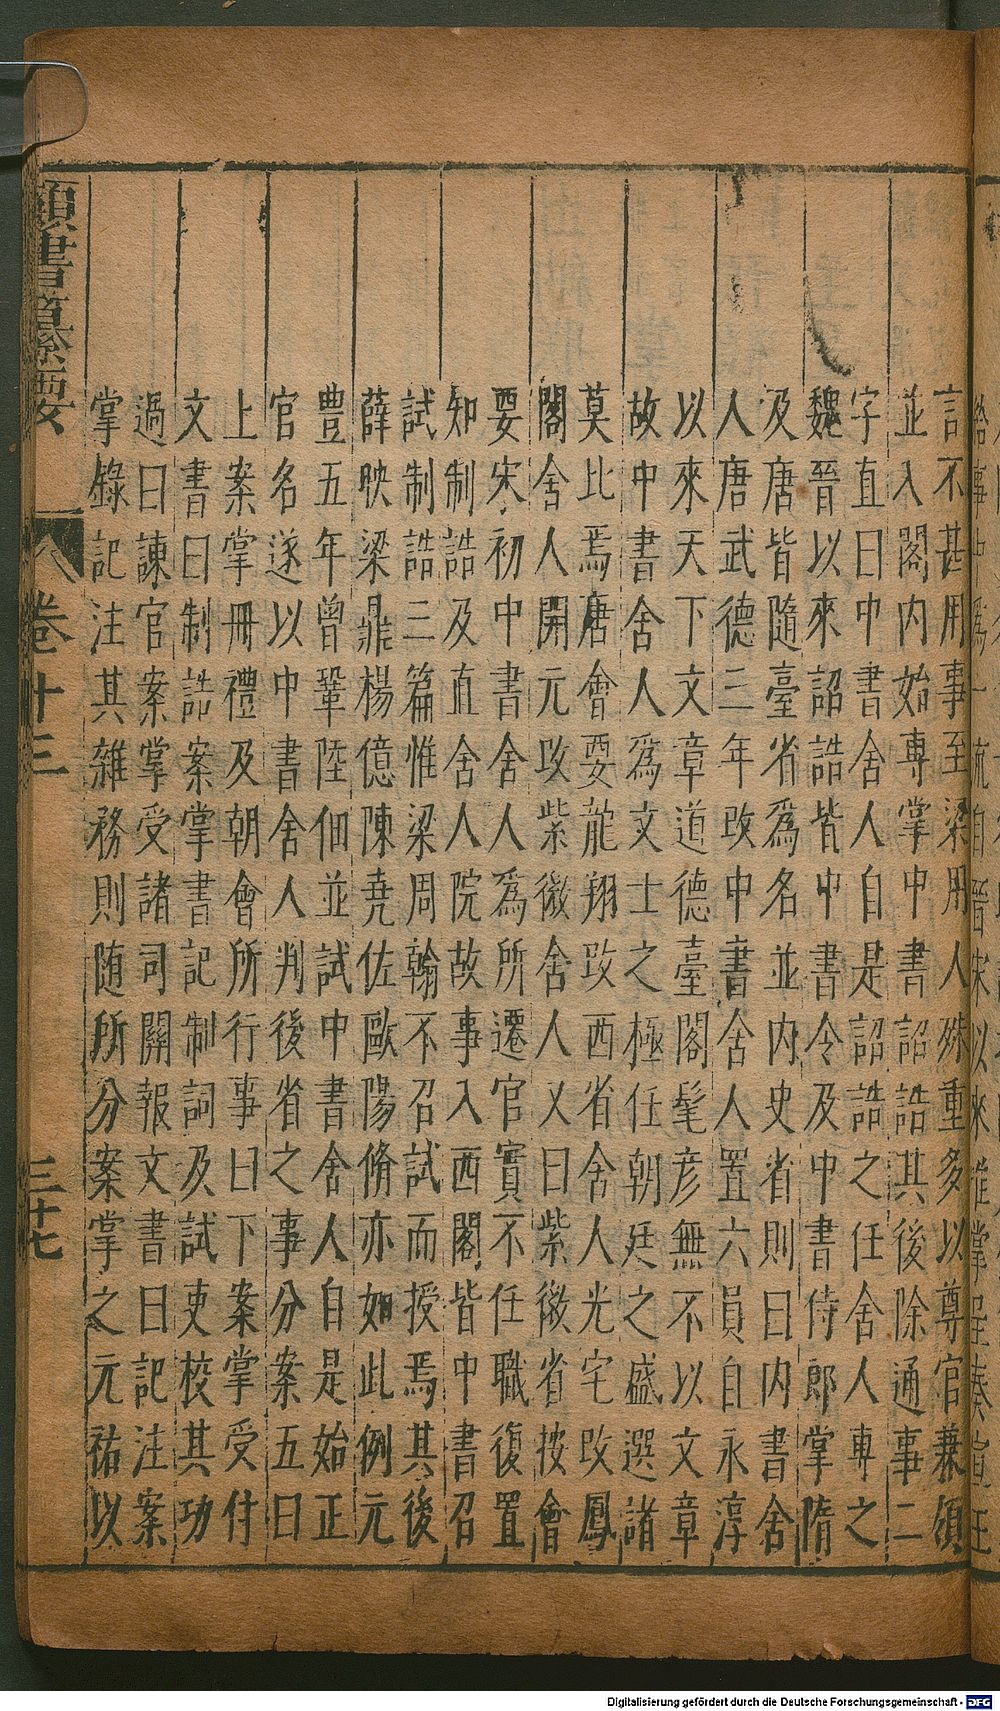 言不甚用事至梁用人殊重多以尊官兼領
並入閣内始專掌中書詔誥其後除通事二
字直曰中書舍人自是詔誥之任舍人專之
魏晉以來詔誥皆中書令及中書侍郎掌隋
及唐皆隨臺省爲名並内史省則曰内書舍
人唐武德三年改中書舍人置六員自永淳
以來天下文章道德臺閣髦彦無不以文章
故中書舍人爲文士之極任朝廷之盛選諸
莫比焉唐會要龍翔改西省舍人光宅改鳳
閣舍人開元改紫微舍人又曰紫微省按會
要宋初中書舍人為所遷官實不任職復置
知制誥及直舍人院故事入西閣皆中書召
試制誥三篇惟梁周翰不召試而授焉其後
薛映梁鼎楊億陳堯佐歐陽脩亦如此例元
豊五年曾鞏陸佃並試中書舍人自是始正
官名遂以中書舍人判後省之事分案五曰
上案掌冊禮及朝會所行事曰下案掌受付
文書曰制誥案掌書記制詞及試吏校其功
過曰諫官案掌受諸司關報文書曰記注案
掌錄記注其雜務則随所分案掌之元祐以
類書纂要 卷十三 三十七
Digitalisierung gefördert durch die Deutsche Forschungsgemeinschaft - DFG